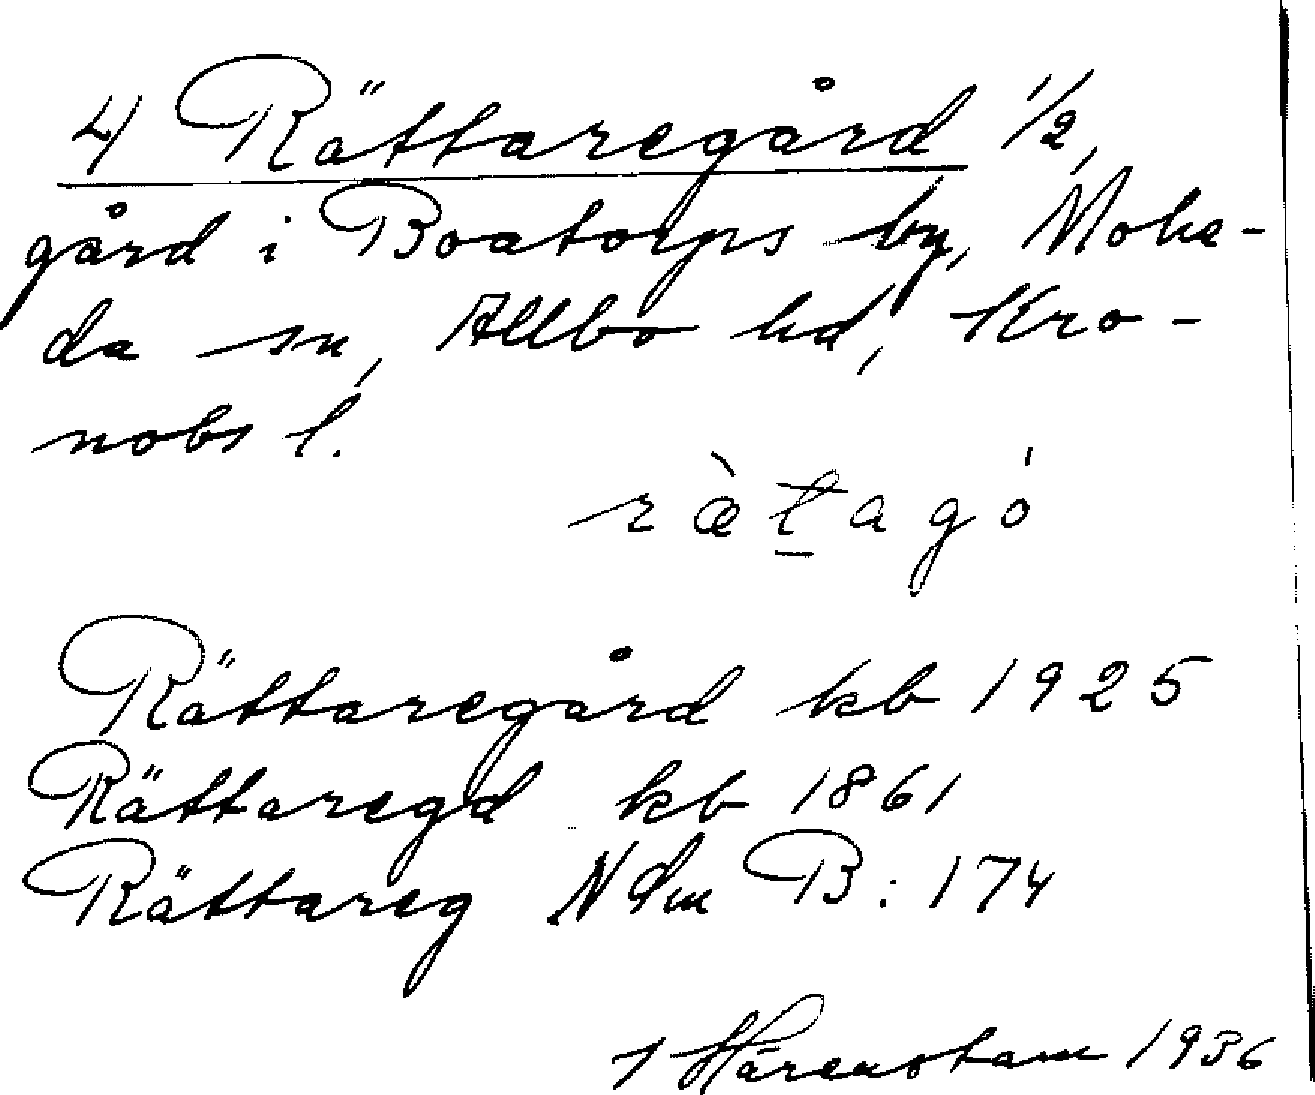 4) Rättaregård 1/2,
gård i Boatorps by, Mohe-
da sn, Allbo hd, Kro-
nobs l.
ræ̀t̠agó
Rättaregård kb 1925
Rättaregd kb 1861
Rättareg Ndm B: 174
Härenstam 1936